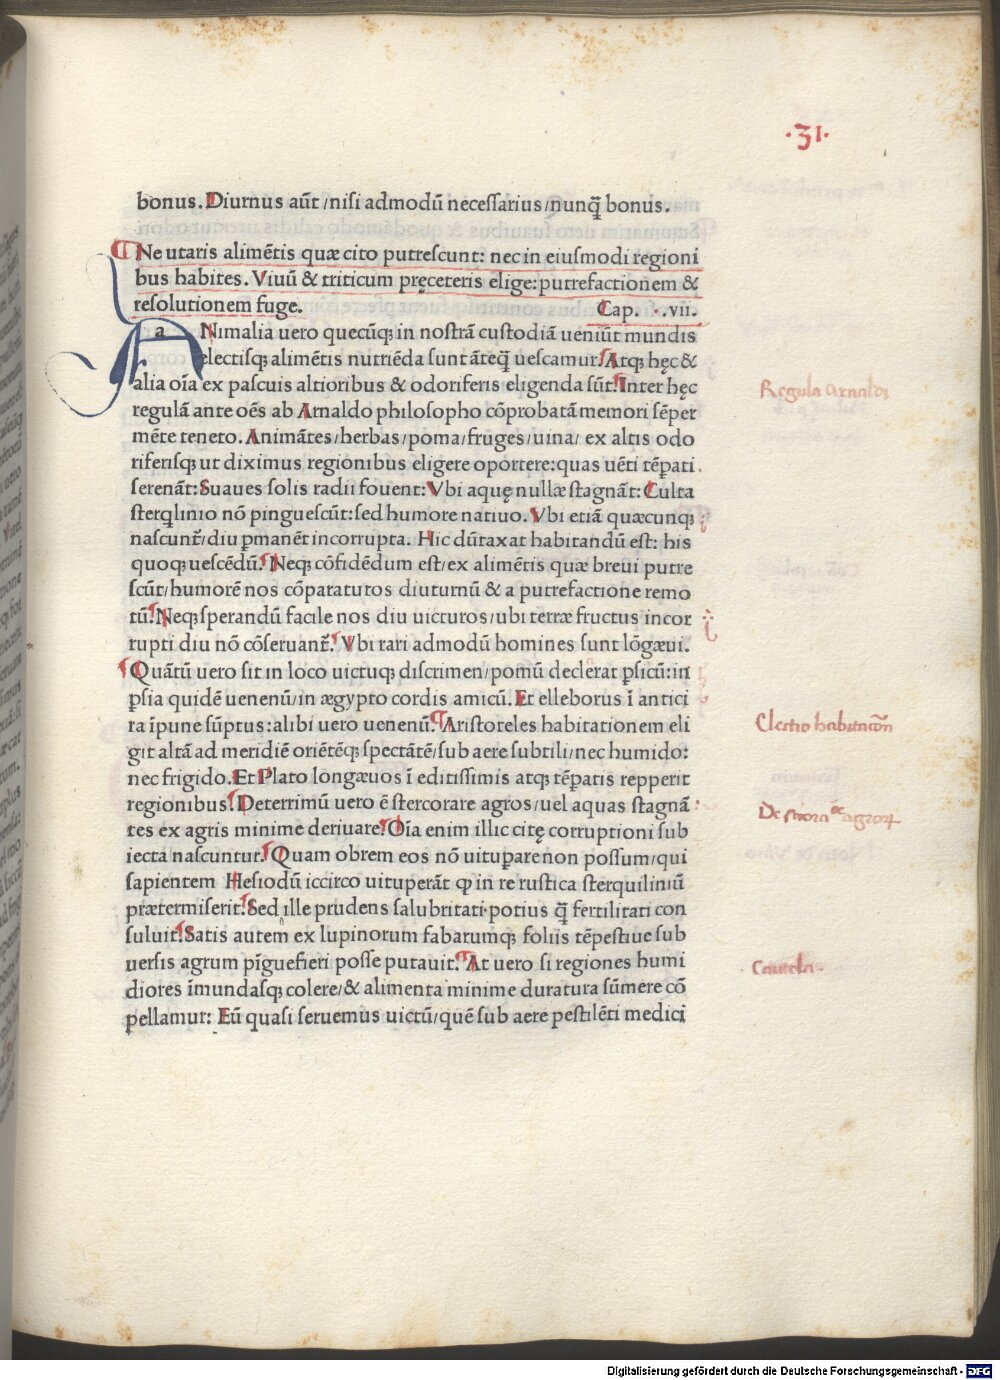 ·31·
bonus. Diurnus aūt/nisi admodū necessarius/nunq̄ bonus.
¶ Ne utaris alimētis quæ cito putrescunt: nec in eiusmodi regioni
bus habites. Viuū & triticum pręceteris elige: putrefactionem &
resolutionem fuge. Cap. .vii.
a Nimalia uero quecūq; in nostrā custodiā ueniūt mundis
electisq; alimētis nutriēda sunt āteq̄ uescamur. Atq; hęc &
alia oīa ex pascuis altioribus & odoriferis eligenda sūt. Inter hęc
regulā ante oēs ab Arnaldo philosopho cōprobatā memori sēper
mēte teneto. Animātes/herbas/poma/fruges/uina/ ex altis odo
riferisq; ut diximus regionibus eligere oportere: quas uēti tēpati
serenāt: Suaues solis radii fouent: Vbi aquę nullæ stagnāt: Culta
sterq̄linio nō pinguescūt: sed humore natiuo. Vbi etiā quæcunq;
nascunt̄/diu ꝑmanēt incorrupta. Hic dūtaxat habitandū est: his
quoq; uescēdū. Neq; cōfidēdum est/ex alimētis quæ breui putre
scūt/humorē nos cōparaturos diuturnū & a putrefactione remo
tū. Neq; sperandū facile nos diu uicturos/ubi terræ fructus incor
rupti diu nō cōseruant̄. Vbi rari admodū homines sunt lōgæui.
Quātū uero sit in loco uictuq; discrimen/pomū declerat ꝑsicū: in
ꝑsia quidē uenenū/in ægypto cordis amicū. Et elleborus ī antici
ra īpune sūptus: alibi uero uenenū. Aristoteles habitationem eli
git altā ad meridiē oriētēq; spectātē/sub aere subtili/nec humido:
nec frigido. Et Plato longæuos ī editissimis atq; tēꝑatis repperit
regionibus. Deterrimū uero ē stercorare agros/uel aquas stagnā
tes ex agris minime deriuare. Oīa enim illic citę corruptioni sub
iecta nascuntur. Quam obrem eos nō uituꝑare non possum/qui
sapientem Hesiodū iccirco uituperāt ꝙ in re rustica sterquiliniū
prætermiserit. Sed ille prudens salubritati potius q̄ fertilitati con
suluit. Satis autem ex lupinorum fabarumq; foliis tēpestiue sub
uersis agrum pīguefieri posse putauit. At uero si regiones humi
diores īmundasq; colere/& alimenta minime duratura sūmere cō
pellamur: Eū quasi seruemus uictū/quē sub aere pestilēti medici
Regula Arnaldi
Electio habitacōn
De agroꝝ
Cautela.
Digitalisierung gefördert durch die Deutsche Forschungsgemeinschaft - DFG